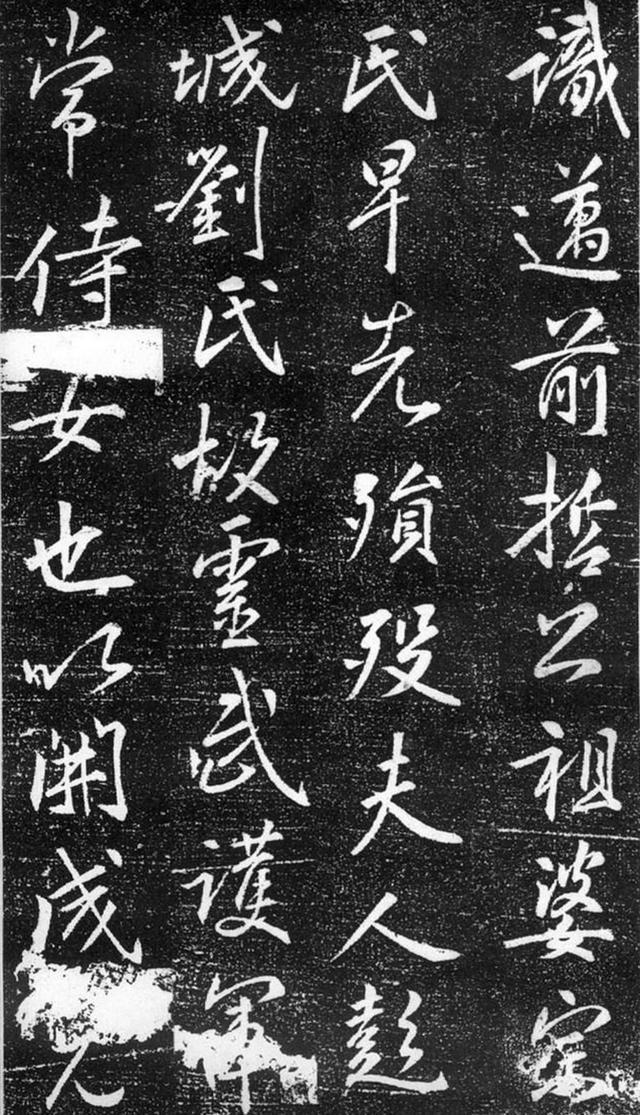 識邁前哲公祖婆宗
氏早先殞歿夫人彭
城劉氏故靈武護軍
常侍女也以開成元